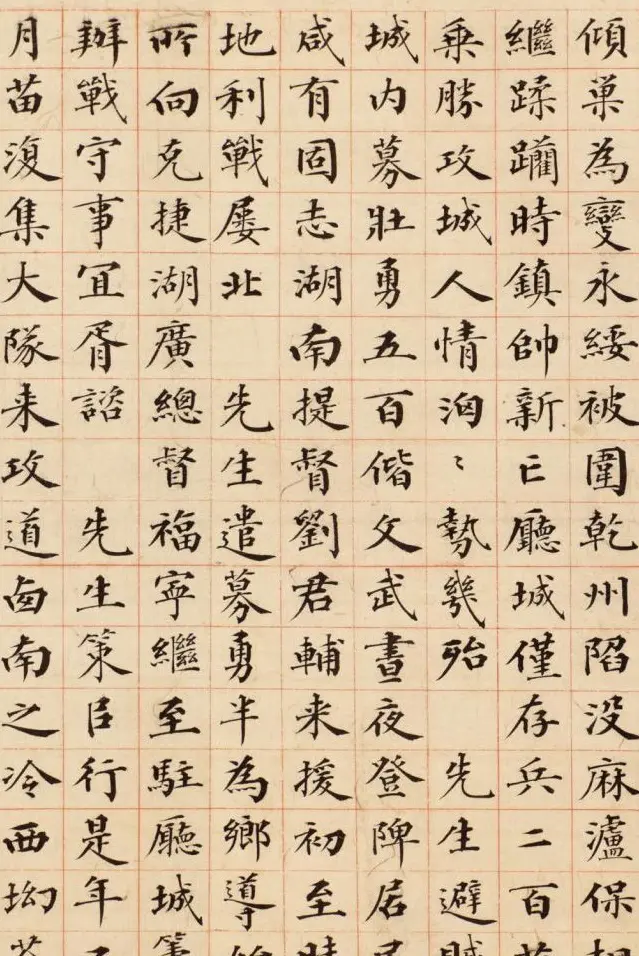 傾巢為變永綏被圍乾州陷没麻瀘保
繼蹂躪時鎮帥新亡廳城僅存兵二百
乗勝攻城人情洶〻勢幾殆 先生避
城内募壯勇五百偕文武晝夜登陴居
咸有固志湖南提督劉君輔来援初至
地利戰屢北 先生遣募勇半為鄉導
所向克捷湖廣總督福寧繼至駐廳城
辦戰守事冝胥諮 先生策臣行是年
月苗復集大隊来攻道鹵南之冷西坳